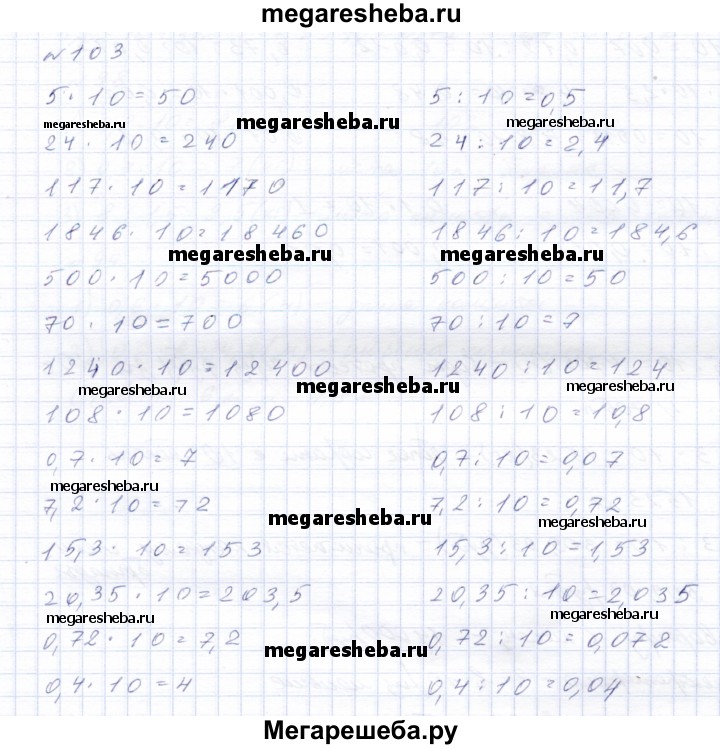 megaresheba.ru
№103
5·10=50 5:10=0,5
megaresheba.ru megaresheba.ru megaresheba.ru
24·10=240 24:10=2,4
117·10=1170 117:10=11,7
1846·10=18460 1846:10=184,6
megaresheba.ru megaresheba.ru
500·10=5000 500:10=50
70·10=700 70:10=7
1240·10=12400 1240:10=124
megaresheba.ru megaresheba.ru megaresheba.ru
108·10=1080 108:10=10,8
0,7·10=7 0,7:10=0,07
megaresheba.ru
7,2·10=72 7,2:10=0,72
megaresheba.ru megaresheba.ru
15,3·10=153 15,3:10=1,53
20,35·10=203,5 20,35:10=2,035
megaresheba.ru megaresheba.ru
0,72·10=7,2 0,72:10=0,072
megaresheba.ru
0,4·10=4 0,4:10=0,04
Мегарешеба.ру